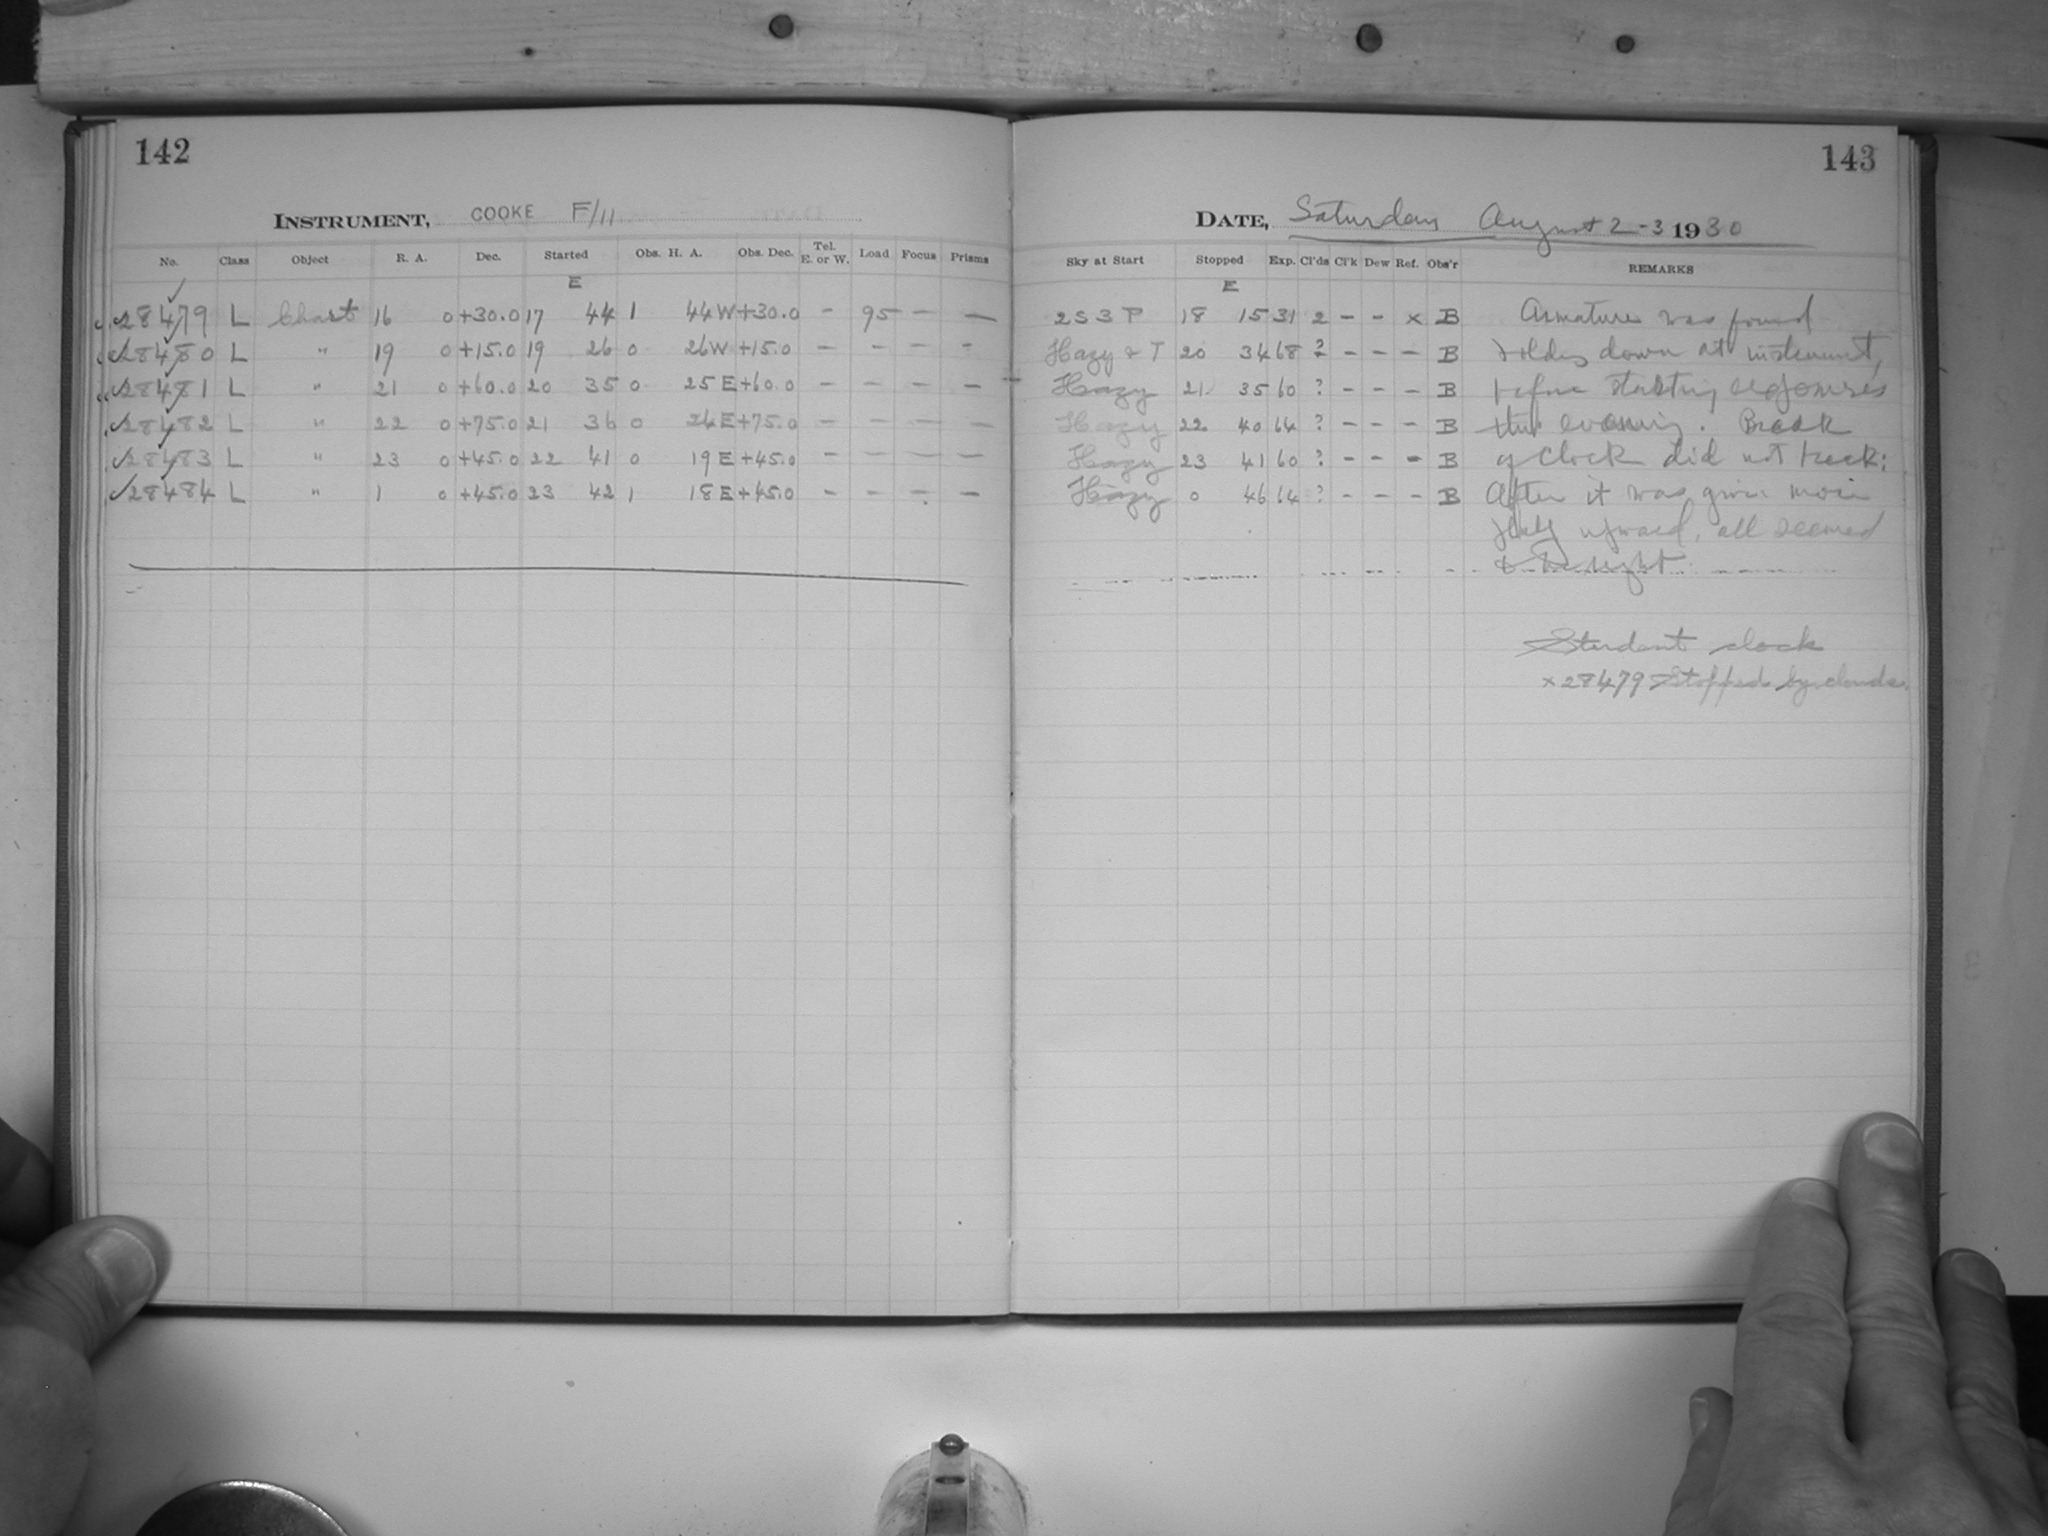 142
INSTRUMENT, COOKE F/11
No. Class Object R. A. Dec. Started Obs. H. A. Obs. Dec. Tel. E. or W. Load Focus Prisms
E
28479 L Chart 16 0 +30.0 17 44 1 44 W +30.0 - 95 - -
28480 L " 19 0 +15.0 19 26 0 26 W +15.0 - - - -
28481 L " 21 0 +60.0 20 35 0 25 E +60.0 - - - -
28482 L " 22 0 +75.0 21 36 0 24 E +75.0 - - - -
28483 L " 23 0 +45.0 22 41 0 19 E +45.0 - - - -
28484 L " 1 0 +45.0 23 42 1 18 E +45.0 - - - -
143
DATE, Saturday August 2-3 1930
Sky at Start Stopped Exp. Cl'ds Cl'k Dew Ref. Obs'r REMARKS
E
2 S 3 P 18 15 31 2 - - x B Armature was found
Hazy & T 20 34 68 ? - - - B down at instrument,
Hazy 21 35 60 ? - - - B before starting exposures
Hazy 22 40 64 ? - - - B this evening. Break
Hazy 23 41 60 ? - - - B of clock did not
Hazy 0 46 64 ? - - - B After it was given more
upward, all seemed
to be right
clock
x 28479 Stopped by clouds.